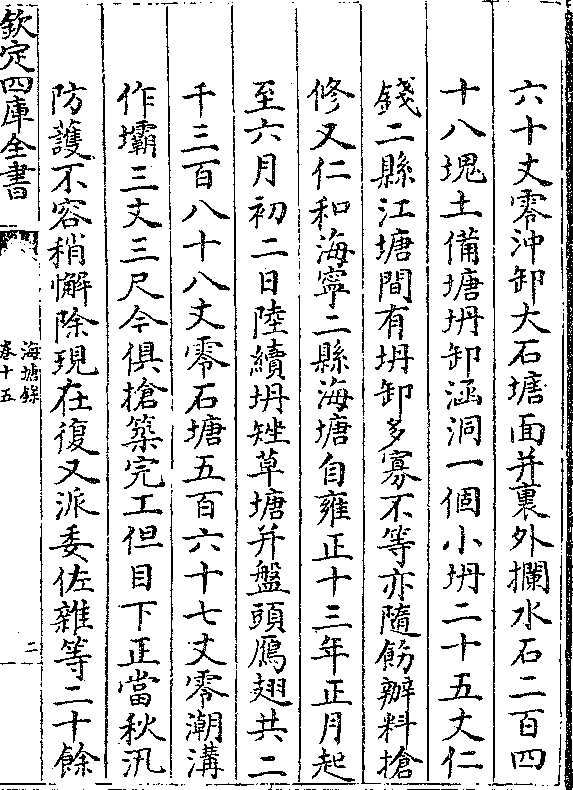 六十丈零沖卸大石塘面并裏外攔水石二百四
十八塊土備塘坍卸涵洞一個小坍二十五丈仁
錢二縣江塘間有坍卸多寡不等亦隨飭辦料搶
修又仁和海寧二縣海塘自雍正十三年正月起
至六月初二日陸續坍矬草塘并盤頭鴈翅共二
千三百八十八丈零石塘五百六十七丈零潮溝
作壩三丈三尺今俱搶築完工但目下正當秋汛
防護不容稍懈除現在復又派委佐雜等二十餘
欽定四庫全書
海塘錄
卷十五
二